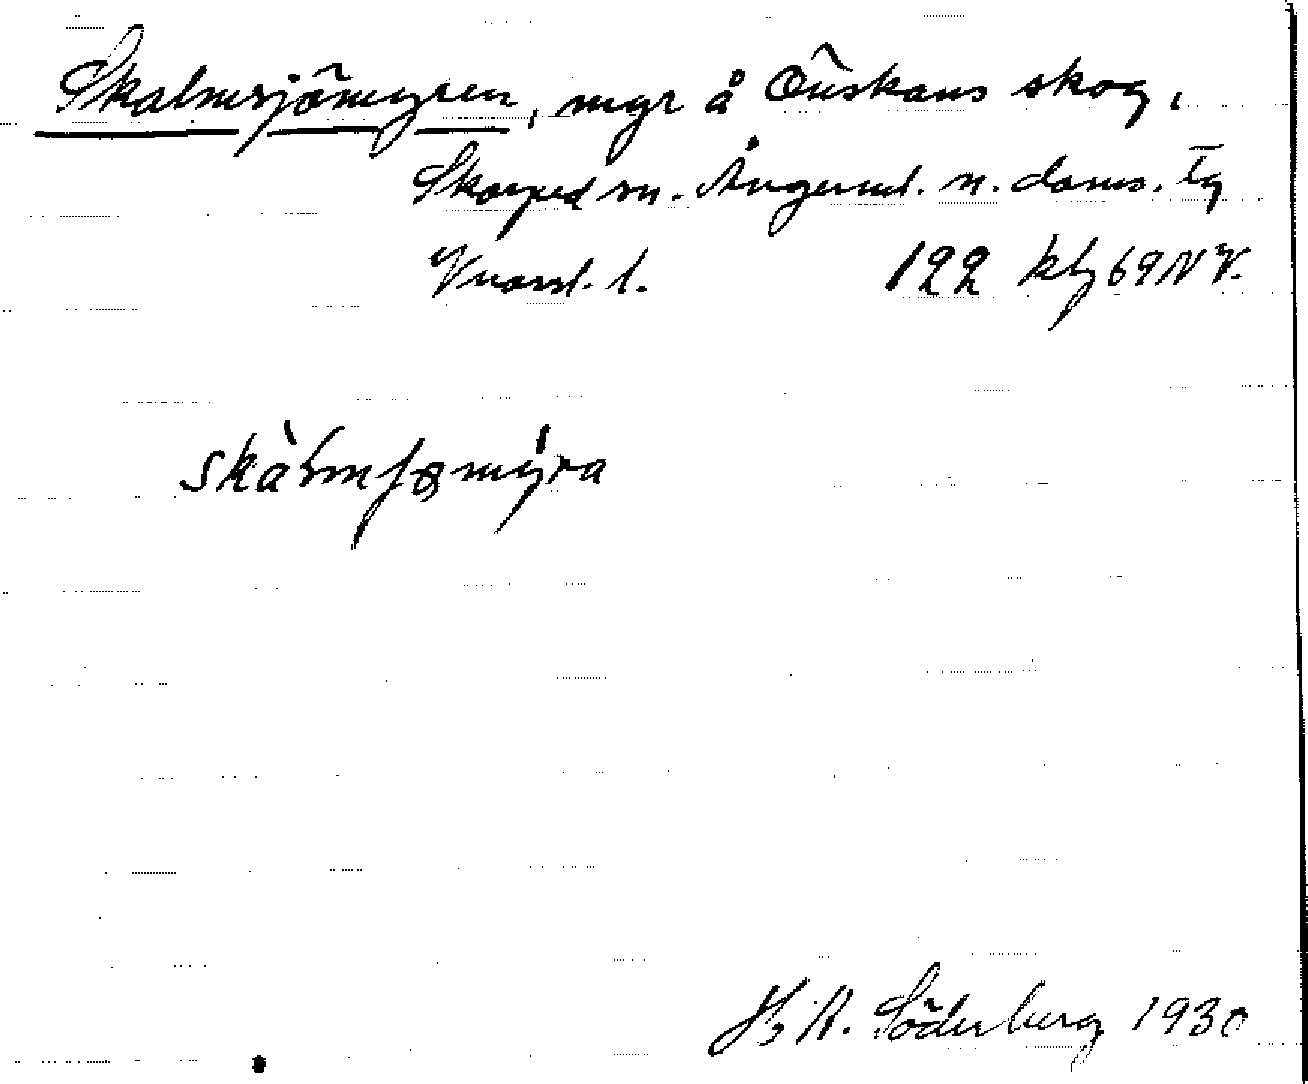 Skalmsjömyren, myr å Önskans skog,
Skorped sn. Ångerml. n. doms. tg
Vnorrl. l. 122 kbl 69 NV.
skàlmʃømýra
H. A. Söderberg 1930